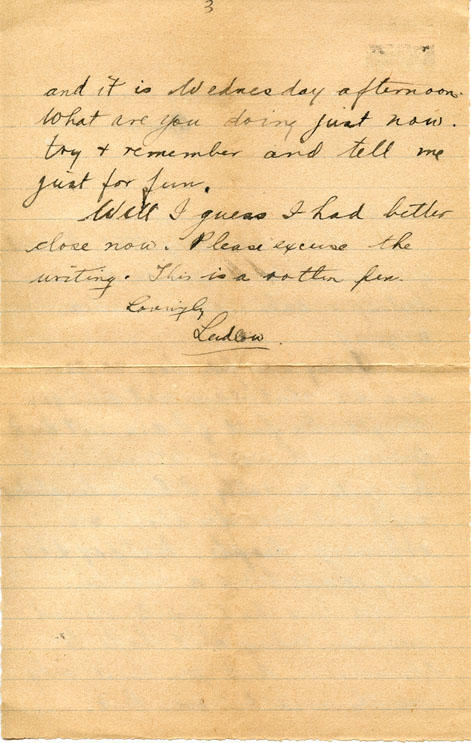 3
and it is Wednesday afternoon.
What are you doing just now.
try + remember and tell me
just for fun.
Well I guess I had better
close now. Please excuse the
writing. This is a rotten pen.
Lovingly
Ludlow.